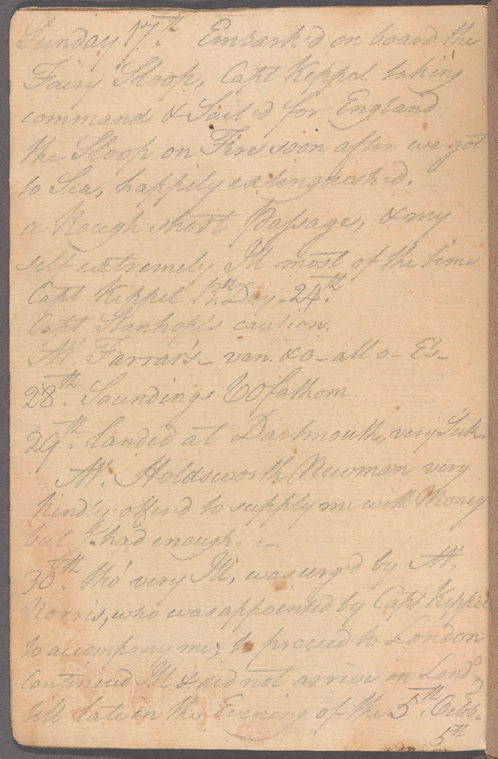 Sunday 17th. Embark'd on board the
Fairy Sloop, Capt Keppel taking
command & Sail'd for England
the Sloop on Fire soon after we got
to Sea, happily extinguish'd.
a Rough short Passage, & my
self extremely Ill most of the time
Capt Keppel Bth Day. 24th.
Capt Stanhope's caution.
Mr. Farrar's - van. & o - all o - E's -
28th. Saundings 60 fathom
29th. landed at Dartmouth, very Sick.
Mr. Holdsworth Newman very
kindly offer'd to supply me with Money
but I had enough.
30th. tho' very Ill, was urg'd by Mr.
Norris, who was appointed by Capt Keppel
to accompany me, to proceed to London
continued Ill & did not arrive in Lond
till late in the Evening of the 5th. Octob.
5th